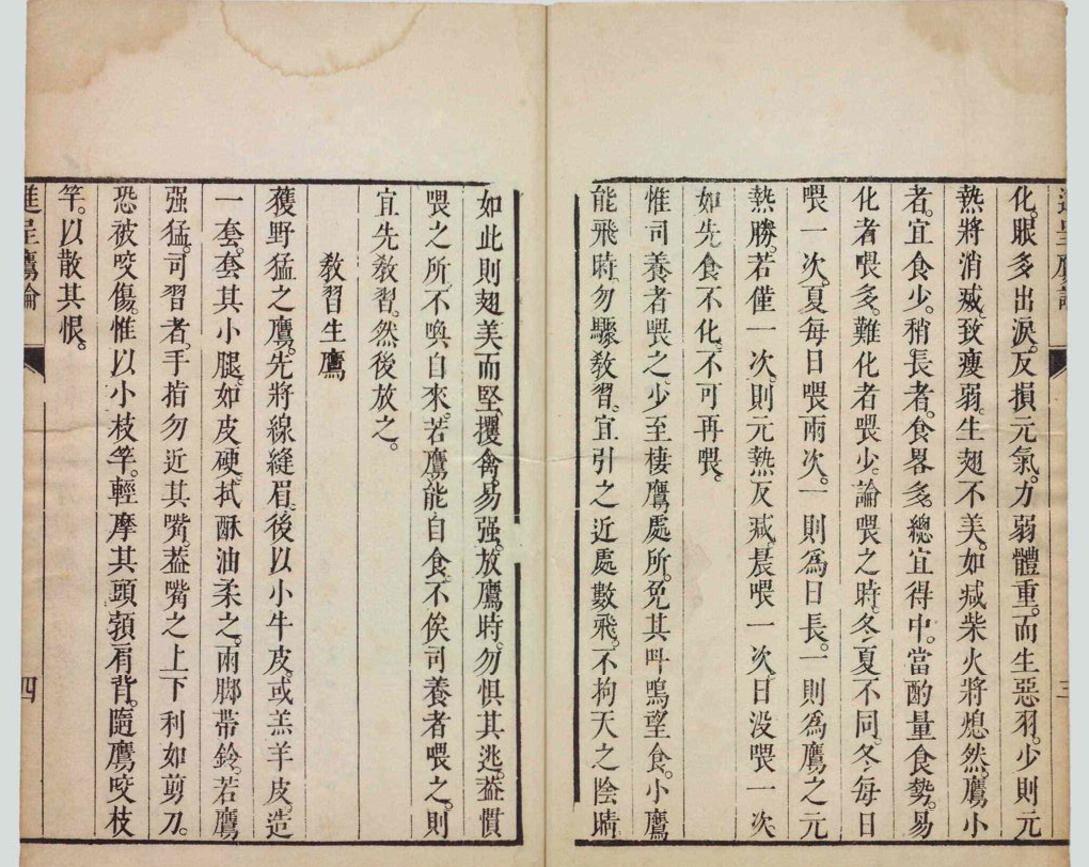 化。眼多出淚。反損元氣。力弱體重。而生惡羽。少則元
熱將消減。致瘦弱。生翅不美。如減柴火將熄然。鷹小
者。宜食少。稍長者。食畧多。總宜得中。當酌量食勢。易
化者喂多。難化者喂少。論喂之時。冬夏不同。冬每日
喂一次。夏每日喂兩次。一則爲日長。一則爲鷹之元
熱勝。若僅一次。則元熱反減。晨喂一次。日没喂一次
如先食不化。不可再喂。
惟司養者喂之。少至棲鷹處所。免其呌鳴望食。小鷹
能飛時。勿驟敎習。宜引之近處數飛。不拘天之陰晴
如此則翅美而堅。攫禽易强。放鷹時。勿惧其逃。葢慣
喂之所。不喚自來。若鷹能自食。不俟司養者喂之。則
宜先敎習。然後放之。
敎習生鷹
獲野猛之鷹。先將線縫眉。後以小牛皮。或羔羊皮。造
一套。套其小腿。如皮硬。拭酥油柔之。兩脚帶鈴。若鷹
强猛。司習者。手指勿近其嘴。葢嘴之上下利如剪刀。
恐被咬傷。惟以小枝竿。輕摩其頭頸肩背。隨鷹咬枝
竿。以散其恨。
進呈鷹論
四